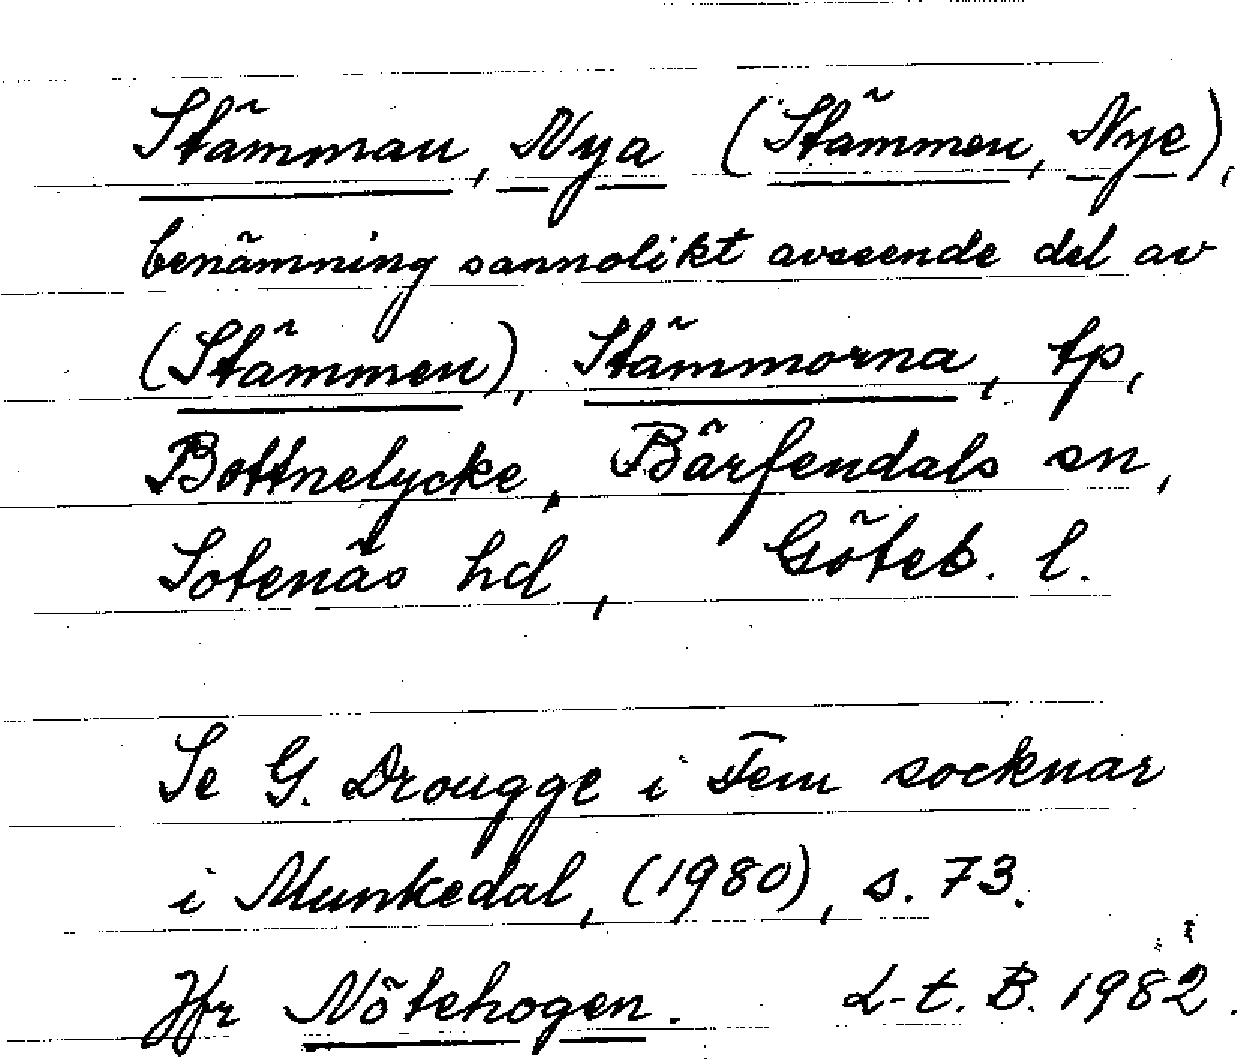 Stämman, Nya (Stämmen, Nye),
benämning sannolikt avseende del av
(Stämmen), Stämmorna, tp,
Bottnelycke, Bärfendals sn,
Sotenäs hd, Göteb. l.
Se G. Drougge i Fem socknar
i Munkedal, (1980), s. 73.
Jfr Nötehogen. L-t. B. 1982.